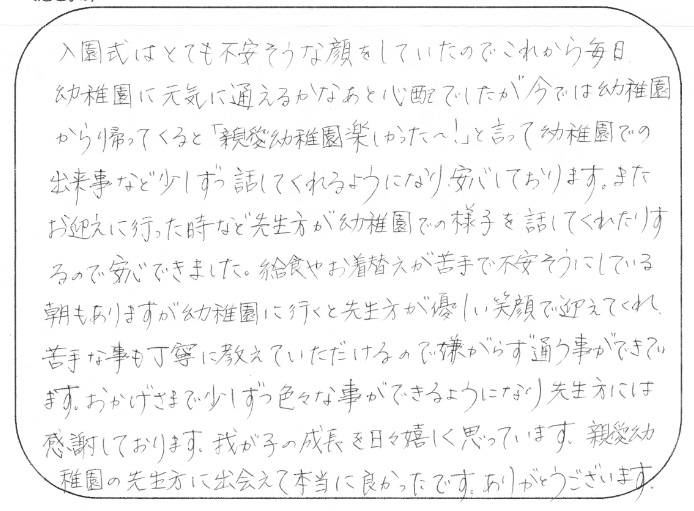 入園式はとても不安そうな顔をしていたのでこれから毎日
幼稚園に元気に通えるかなぁと心配でしたが今では幼稚園
から帰ってくると「親愛幼稚園楽しかった〜!」と言って幼稚園での
出来事など少しずつ話してくれるようになり安心しております。また
お迎えに行った時など先生方が幼稚園での様子を話してくれたりす
るので安心できました。給食やお着替えが苦手で不安そうにしている
朝もありますが幼稚園に行くと先生方が優しい笑顔で迎えてくれ、
苦手な事も丁寧に教えていただけるので嫌がらず通う事ができてい
ます。おかげさまで少しずつ色々な事ができるようになり先生方には
感謝しております。我が子の成長を日々嬉しく思っています。親愛幼
稚園の先生方に出会えて本当に良かったです。ありがとうございます。